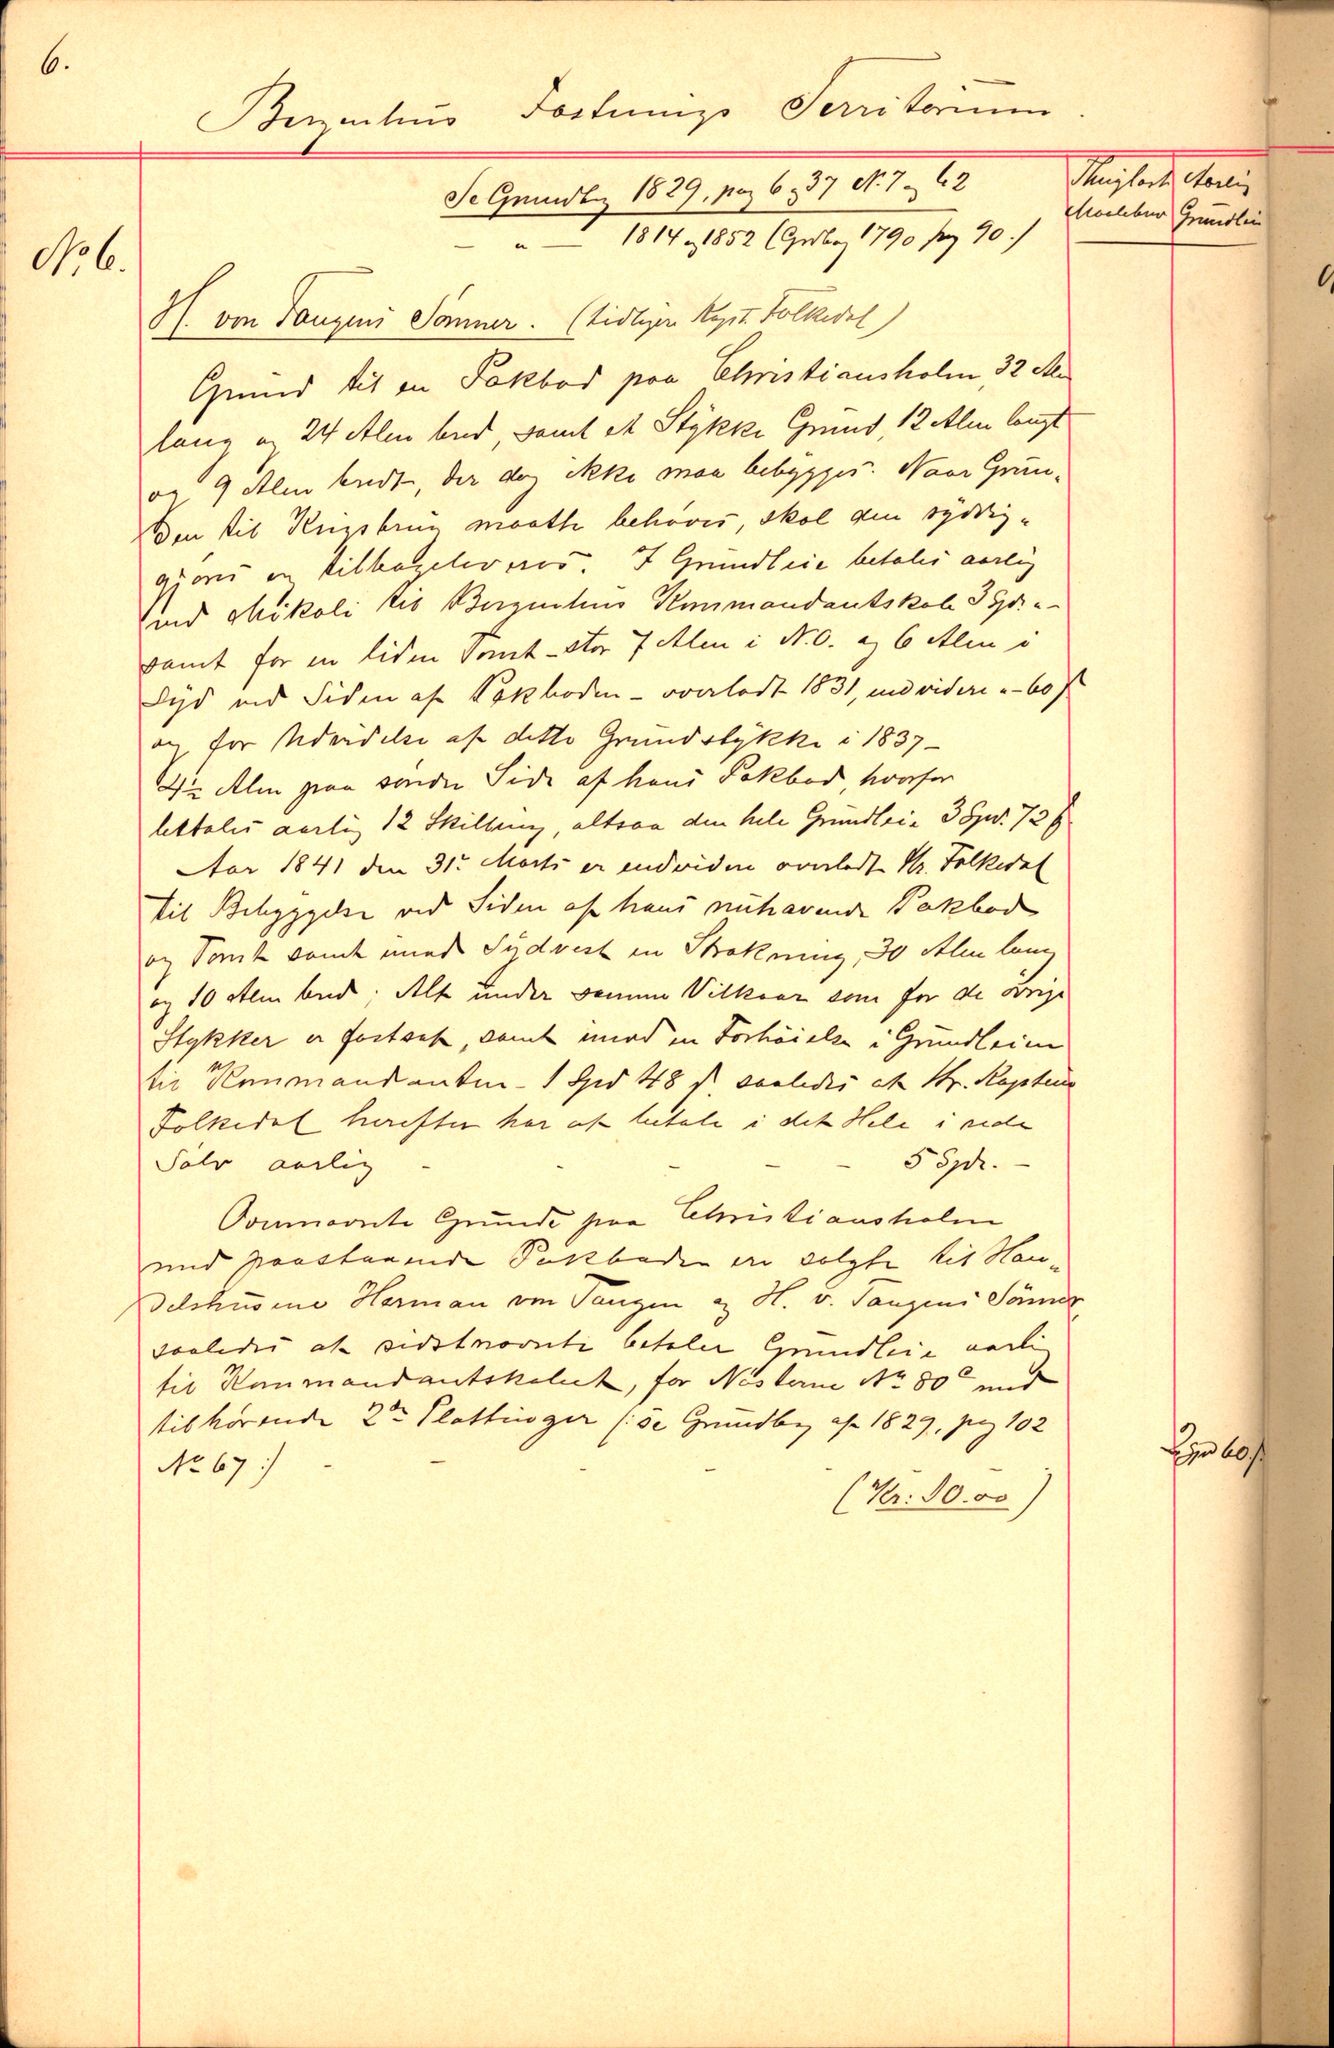 6.
Bergenhus Fæstnings Territorium.
Se Grundbog 1829, pag 6 og 37 No. 7 og 42
— " — 1814 og 1852 (Grdbog 1790 pag 90.)
Tinglæst Aarlig
Grundleie
No. 6.
H. von Tangens Sønner. (tidligere Kapt. Folkedal)
Grund til en Pakbod paa Christiansholm, 32 Alen
lang og 24 Alen bred, samt et Stykke Grund, 12 Alen langt
og 9 Alen bredt, der dog ikke maa bebygges. Naar Grun-
den til Krigsbrug maatte behøves, skal den ryddig-
gjøres og tilbageleveres. I Grundleie betales aarlig
ved Mikali til Bergenhus Kommandantskab 3 Spdr. " -
samt for en liden Tomt - stor 7 Alen i N.O. og 6 Alen i
Syd ved Siden af Pakboden - overladt 1831, endvidere " - 60 ß
og for Udvidelse af dette Grundstykke i 1837 -
4½ Alen paa søndre Side af hans Pakbod, hvorfor
bettales aarlig 12 Skilling, altsaa den hele Grundleie 3 Spd. 72 ß
Aar 1841 den 31te Marts er endvidere overladt Hr. Folkedal
til Bebyggelse ved Siden af hans nuhavende Pakbod
og Tomt samt imod Sydvest en Strækning, 30 Alen lang
og 10 Alen bred; Alt under samme Vilkaar som for de øvrige
Stykker er fastsat, samt imod en Forhøielse i Grundleien
til Kommandanten - 1 Spd 48 ß saaledes at Hr. Kaptein
Folkedal herefter har at betale i det Hele i rede
Sølv aarlig - - - - - 5 Spdr. -
Ovennævnte Grunde paa Christiansholm
med paastaaende Pakboder er solgte til Han-
delshusene Herman von Tangen og H. v. Tangens Sønner,
saaledes at sidstnævnte betaler Grundleie aarlig
til Kommandantskabet, for Nøsterne No 80 c med
tilhørende 2de Plattinger (: se Grundbog af 1829, pag 102
No 67 :) - - - -
60 ß
(Kr: 10.00)